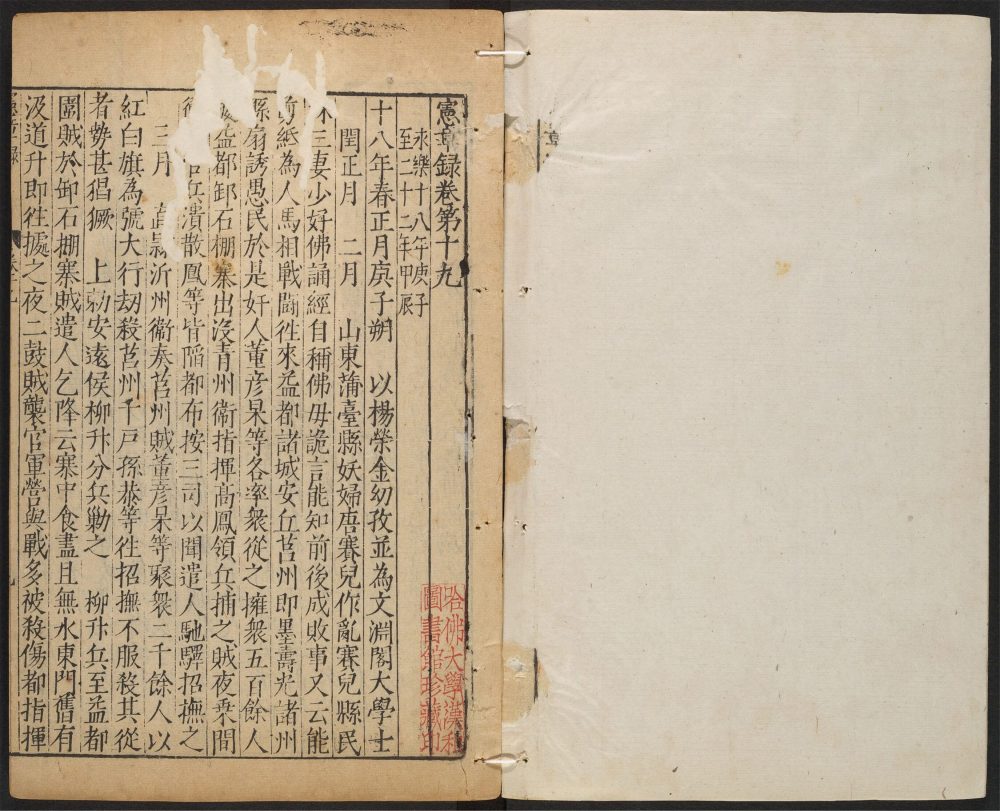 憲章録卷第十九
永樂十八年庚子
至二十二年甲辰
十八年春正月庚子朔　以楊榮金幼孜並為文淵閣大學士
閏正月　二月　山東蒲臺縣妖婦唐賽兒作亂賽兒縣民
林三妻少好佛誦經自稱佛母詭言能知前後成敗事又云能
剪紙為人馬相戰鬪徃來益都諸城安丘莒州即墨壽光諸州
縣扇誘愚民於是奸人董彦杲等各率衆從之擁衆五百餘人
益都卸石棚寨出沒青州衞指揮高鳳領兵捕之賊夜乗間
兵潰散鳳等皆陷都布按三司以聞遣人馳驛招撫之
三月　沂州衞奏莒州賊董彦杲等聚衆二千餘人以
紅白旗為號大行刼殺莒州千戸孫恭等徃招撫不服殺其從
者勢甚猖獗　上勑安遠侯柳升分兵勦之　柳升兵至益都
圍賊於卸石棚寨賊遣人乞降云寨中食盡且無水東門舊有
汲道升即徃據之夜二鼓賊襲官軍營與戰多被殺傷都指揮
哈佛大學漢和
圖書館珍藏印